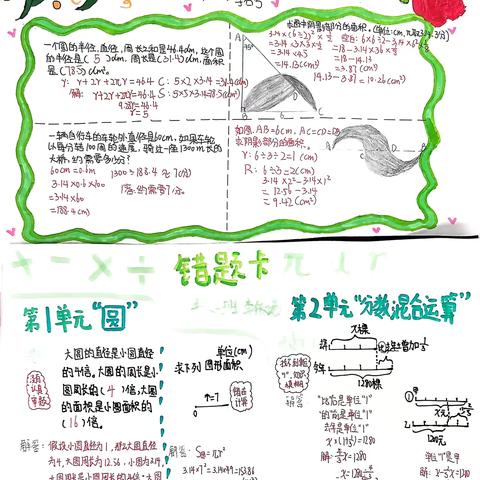 一个圆的半径,直径,周长之和是46.4dm,这个圆
的半径是( 5 )dm,周长是(31.4)dm,面积
是(78.5)dm².
解: r+2r+2πr=46.4
9.28r=46.4
r=5
C: 5×2×3.14=31.4(dm)
S: 5×5×3.14=78.5(dm²)
求图中阴影部分的面积。(单位:cm,π取3.14)
3.14×(6÷2)²×½
=3.14×3×3×½
=14.13(cm²)
=18-14.13
=3.87(cm²)
14.13-3.87=10.26(cm²)
A
45°
B
C
6cm
一辆自行车的车轮外直径是60cm,如果车轮
以每分转100周的速度,骑过一座1300m长的
大桥,约需要多少分?
60cm=0.6m
1300÷188.4≈7(分)
3.14×0.6×100
=3.14×60
=188.4(m)
答:约需要7分。
如图,AB=6cm,AC=CD=DB
求阴影部分的面积。
r: 6÷3÷2=1(cm)
R: 6÷3=2(cm)
3.14×2²-3.14×1²
=12.56-3.14
=9.42(cm²)
A
C
D
B
+ - × ÷ 错题卡 π
第1单元“圆”
大圆的直径是小圆直径
的4倍。大圆的周长是小
圆周长的( 4 )倍,大圆
的面积是小圆面积的
(16)倍。
没有认真审题
解答: 假设小圆直径为1,那么大圆直径
为4,大圆周长为12.56,小圆为3.14,
单位(cm)
求下列图形面积
r=7
错在计算
解答: S圆=πr²
3.14×7²=3.14×49=153.86
第2单元“分数混合运算”
?棵
1280棵
找不到单位“1”
解答
“比”后是单位“1”
“的”前是单位“1”
去年是单位“1”
x×(1+⅓)=1280
解: 4/3x=1280
1280m
单位“1”是甲